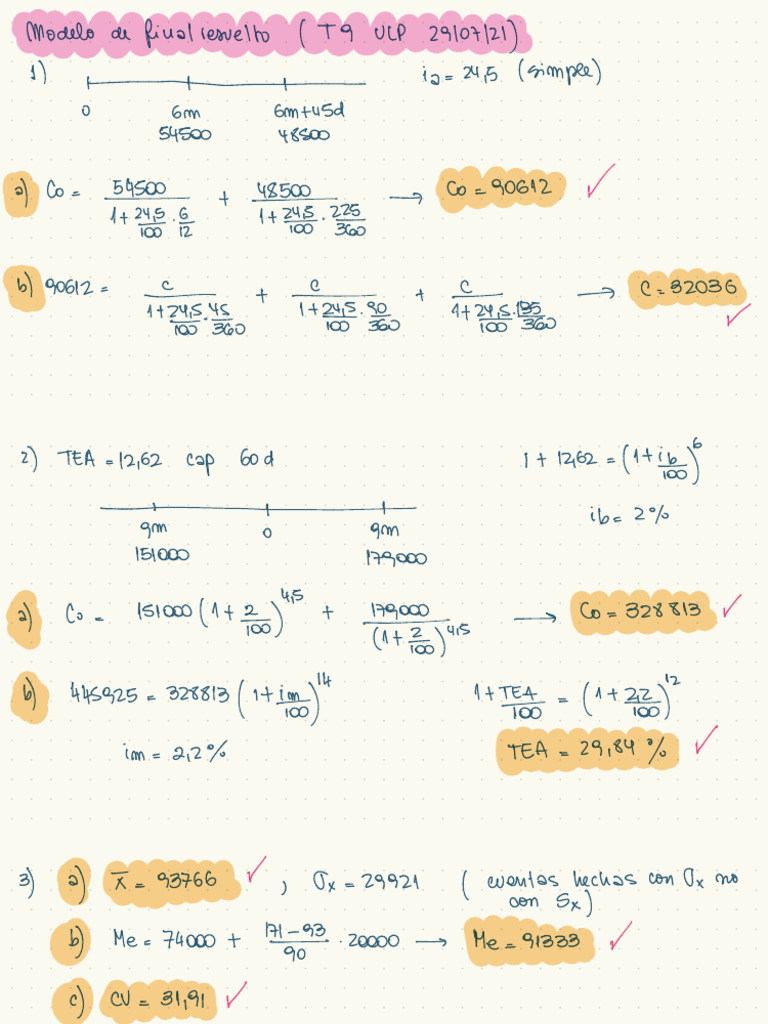 Modelo de final resuelto ( T9 ULP 29/07/21).
1)
0 6m 6m+45d
54500 48500
ia = 24,5 (simple)
a) Co = 54500 / (1 + 24,5/100 · 6/12) + 48500 / (1 + 24,5/100 · 225/360) → Co = 90612 ✓
b) 90612 = c / (1 + 24,5/100 · 45/360) + c / (1 + 24,5/100 · 90/360) + c / (1 + 24,5/100 · 135/360) → C = 32036 ✓
2) TEA = 12,62 cap 60d
1 + 12,62 = (1 + ib/100)^6
ib = 2%
9m 0 9m
151000 179000
a) Co = 151000 (1 + 2/100)^4,5 + 179000 / (1 + 2/100)^4,5 → Co = 328813 ✓
b) 445925 = 328813 (1 + im/100)^14
1 + TEA/100 = (1 + 2,2/100)^12
im = 2,2%
TEA = 29,84 % ✓
3) a) x̄ = 93766 ✓ , σx = 29921 ( cuentas hechas con σx no
con Sx)
b) Me = 74000 + (171-93)/90 · 20000 → Me = 91333 ✓
c) CV = 31,91 ✓